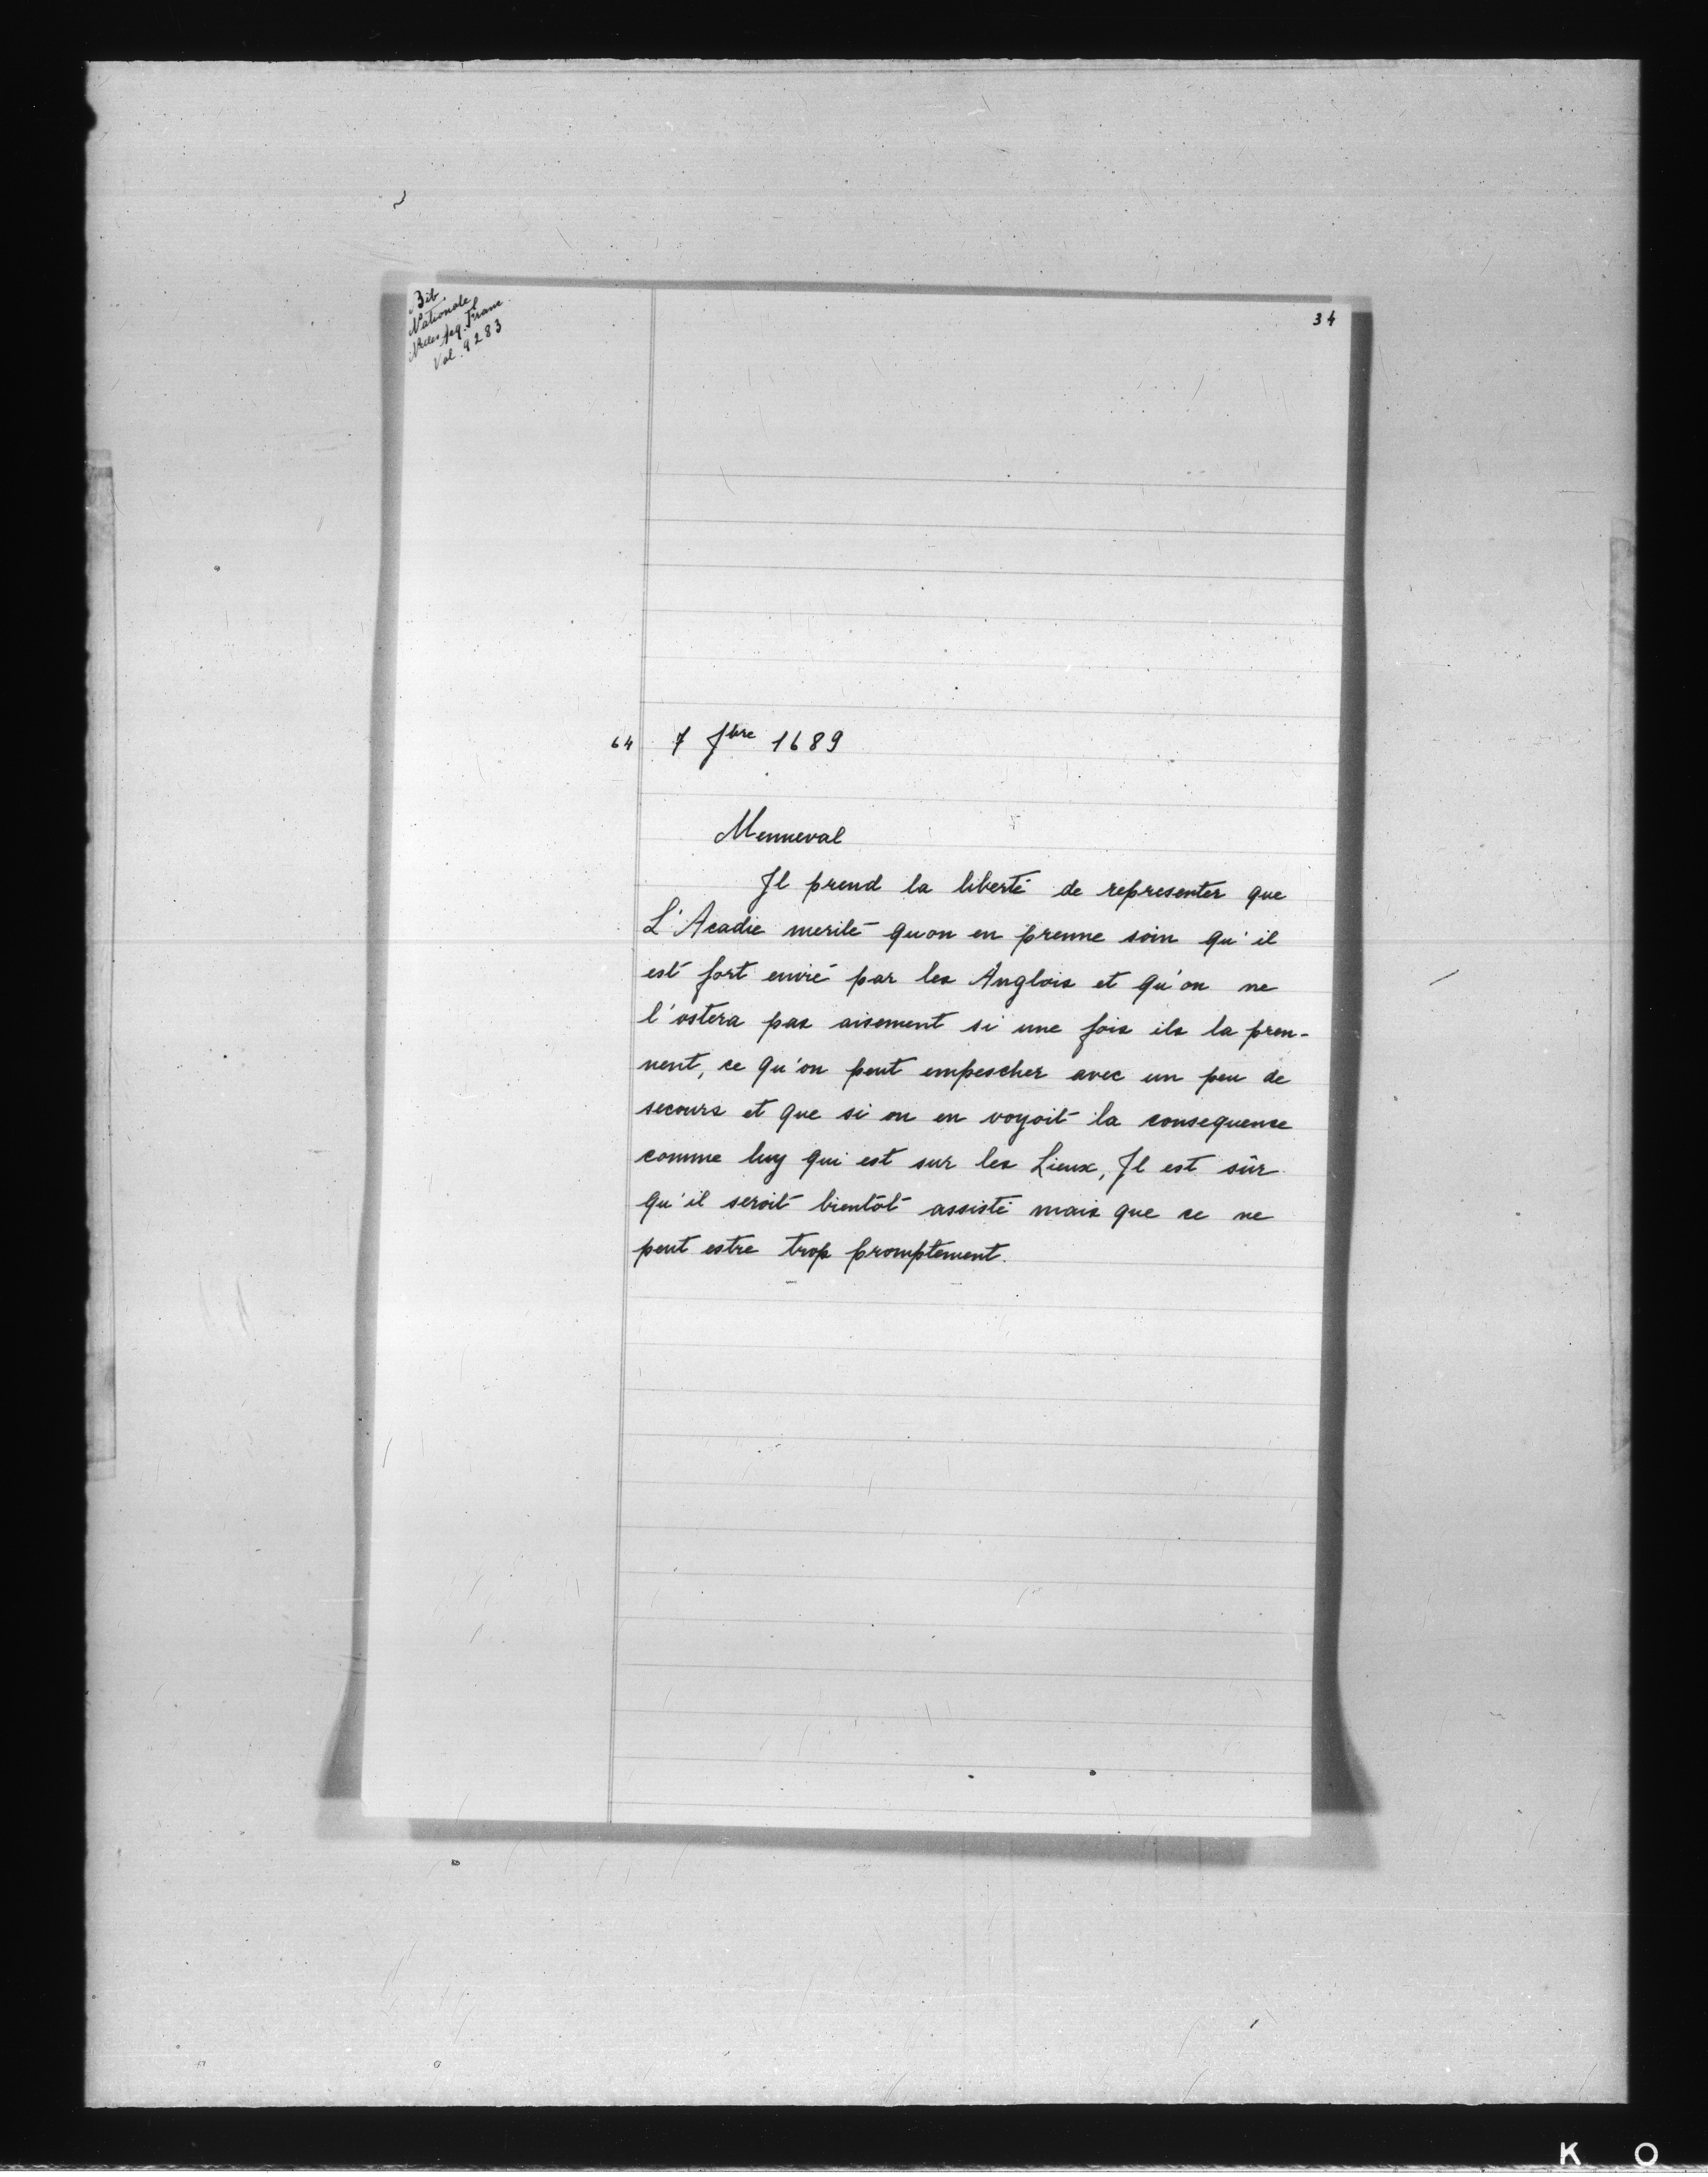 Bib.
Nationale
Nvles Acq. Franc.
Vol. 9283
34
64 7 fbre 1689
Menneval
Jl prend la liberté de representer que
L'Acadie merite qu'on en prenne soin qu'il
est fort envié par les Anglois et qu'on ne
l'ostera pas aisement si une fois ils la pren-
nent, ce qu'on peut empescher avec un peu de
secours et que si on en voyoit la consequence
comme luy qui est sur les Lieux, Jl est sûr
qu'il seroit bientôt assisté mais que ce ne
peut estre trop promptement.
K O